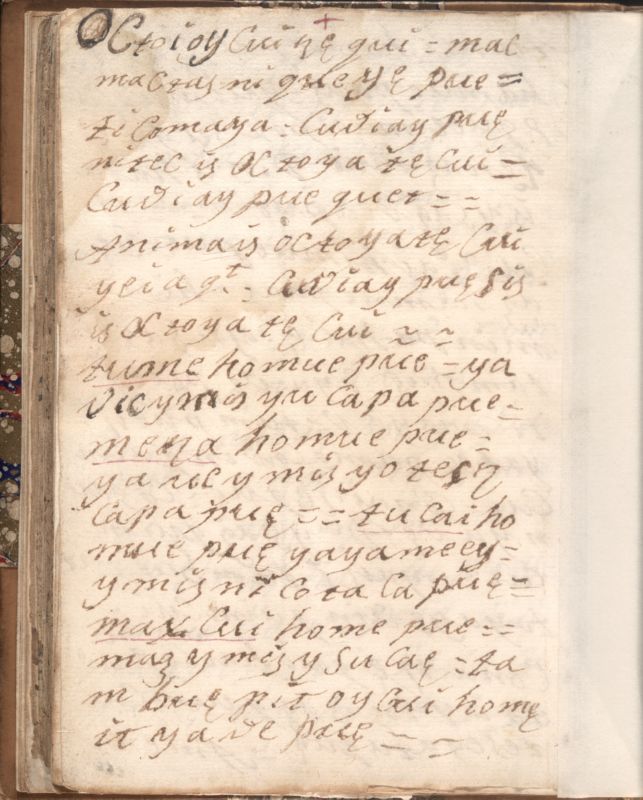 Octoioy Cui nę qui = mac
mactas ni que yę pue =
ti comaya = Cudiay puę
nitec is Octoya tę Cui =
Cudiay pue quet = =
Animais octoyatę Cui
yeiaqt = Cudiay puę sis
is Octoya tę Cui = =
tume homue pue = ya
vicymis yu Capa pue =
mena homue pue =
ya vic y mis yo tecn
capa puę = = tu cai ho
mue puę yayameey =
y mis ni cota ca puę =
max Cui home pue = =
mas y mis y su caę = ta
m buę pit oy Cui homę
it y a de puę = =